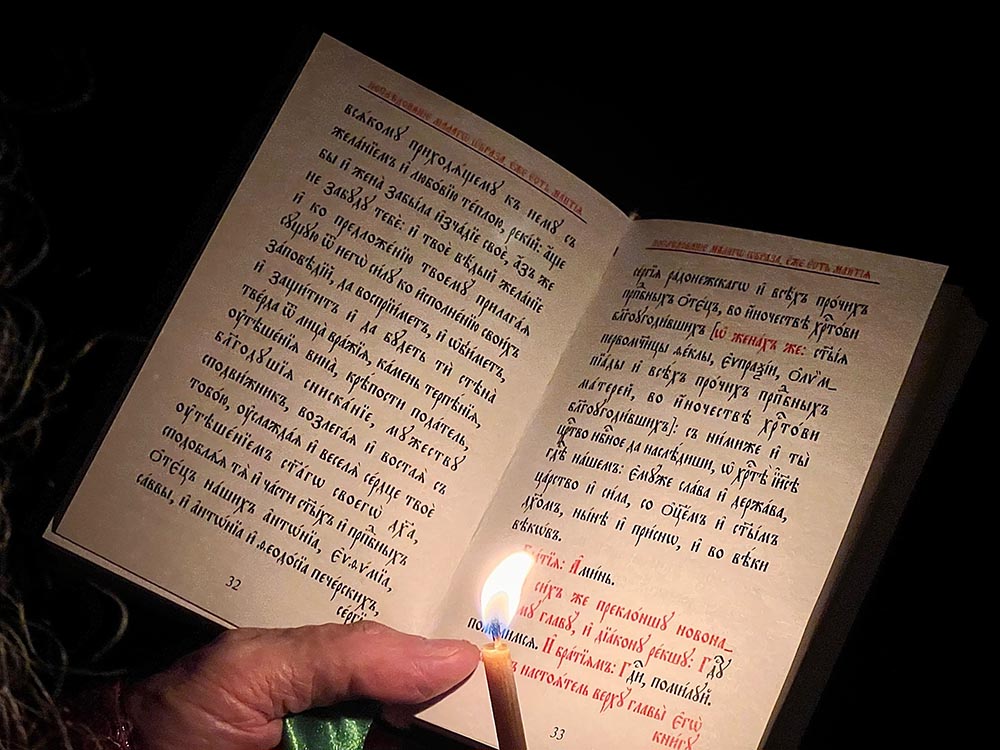 послѣ́дованїе ма́лагѡ ѡ҆́браза, є҆́же є҆́сть ма́нтїа
всѧ́кому приходѧ́щему къ нему̀ съ
жела́нїемъ и҆ любо́вїю те́плою, реки́й: а҆́ще
бы и҆ жена̀ забы́ла и҆зча́дїе своѐ, а҆́зъ же
не забу́ду тебѐ: и҆ твоѐ вѣ́дый жела́нїе
и҆ ко предложе́нїю твоему̀ прилага́ѧ
су́щую ѿ негѡ̀ си́лу ко и҆сполне́нїю свои́хъ
за́повѣдїй, да воспрїи́метъ, и҆ ѡ҆б̾и́метъ,
и҆ защи́титъ и҆ да бу́детъ тѝ стѣна̀
тверда̀ ѿ лица̀ вра́жїѧ, ка́мень терпѣ́нїѧ,
ᲂу҆тѣше́нїѧ вина̀, крѣ́пости пода́тель,
благоду́шїѧ сниска́нїе, му́жеству
сподви́жникъ, возлега́ѧ и҆ воста́ѧ съ
тобо́ю, ᲂу҆слажда́ѧ и҆ веселѧ̀ се́рдце твоѐ
ᲂу҆тѣше́нїемъ ст҃а́гѡ своегѡ̀ дх҃а,
сподоблѧ́ѧ тѧ̀ и҆ ча́сти ст҃ы́хъ и҆ прпⷣбныхъ
ѻ҆тє́цъ на́шихъ а҆нтѡ́нїа, є҆ѵѳѵ́мїа,
са́ввы, и҆ а҆нтѡ́нїа и҆ ѳеодо́сїа пече́рскихъ,
се́ргїа
32
послѣ́дованїе ма́лагѡ ѡ҆́браза, є҆́же є҆́сть ма́нтїа
се́ргїа ра́донежскагѡ и҆ всѣ́хъ про́чихъ
прпⷣбныхъ ѻ҆тє́цъ, во и҆́ночествѣ хрⷭ҇то́ви
бл҃гоугоди́вшихъ [ѡ҆ жена́хъ же: ст҃ы́ѧ
первомч҃ицы ѳе́клы, є҆ѵпраѯі́и, ѻ҆лѷм_
пїа́ды и҆ всѣ́хъ про́чихъ прпⷣбныхъ
ма́терей, во и҆́ночествѣ хрⷭ҇то́ви
бл҃гоугоди́вшихъ]: съ ни́миже и҆ ты̀
црⷭ҇тво нбⷭ҇ное да наслѣ́диши, ѡ҆ хрⷭ҇тѣ̀ і҆и҃сѣ
гдⷭ҇ѣ на́шемъ: є҆мꙋ́же сла́ва и҆ держа́ва,
ца́рство и҆ си́ла, со ѻ҆ц҃е́мъ и҆ ст҃ы́мъ
дх҃омъ, ны́нѣ и҆ при́снѡ, и҆ во вѣ́ки
вѣкѡ́въ.
Бра́тїѧ: А҆ми́нь.
си́хъ же прекло́ншу новона_
му̀ главу̀, и҆ дїа́кону ре́кшу: Гдⷭ҇у
помо́лимсѧ. И҆ бра́тїѧмъ: Гдⷭ҇и, поми́луй.
настоѧ́тель верху̀ главы̀ є҆гѡ̀
кни́гу
33